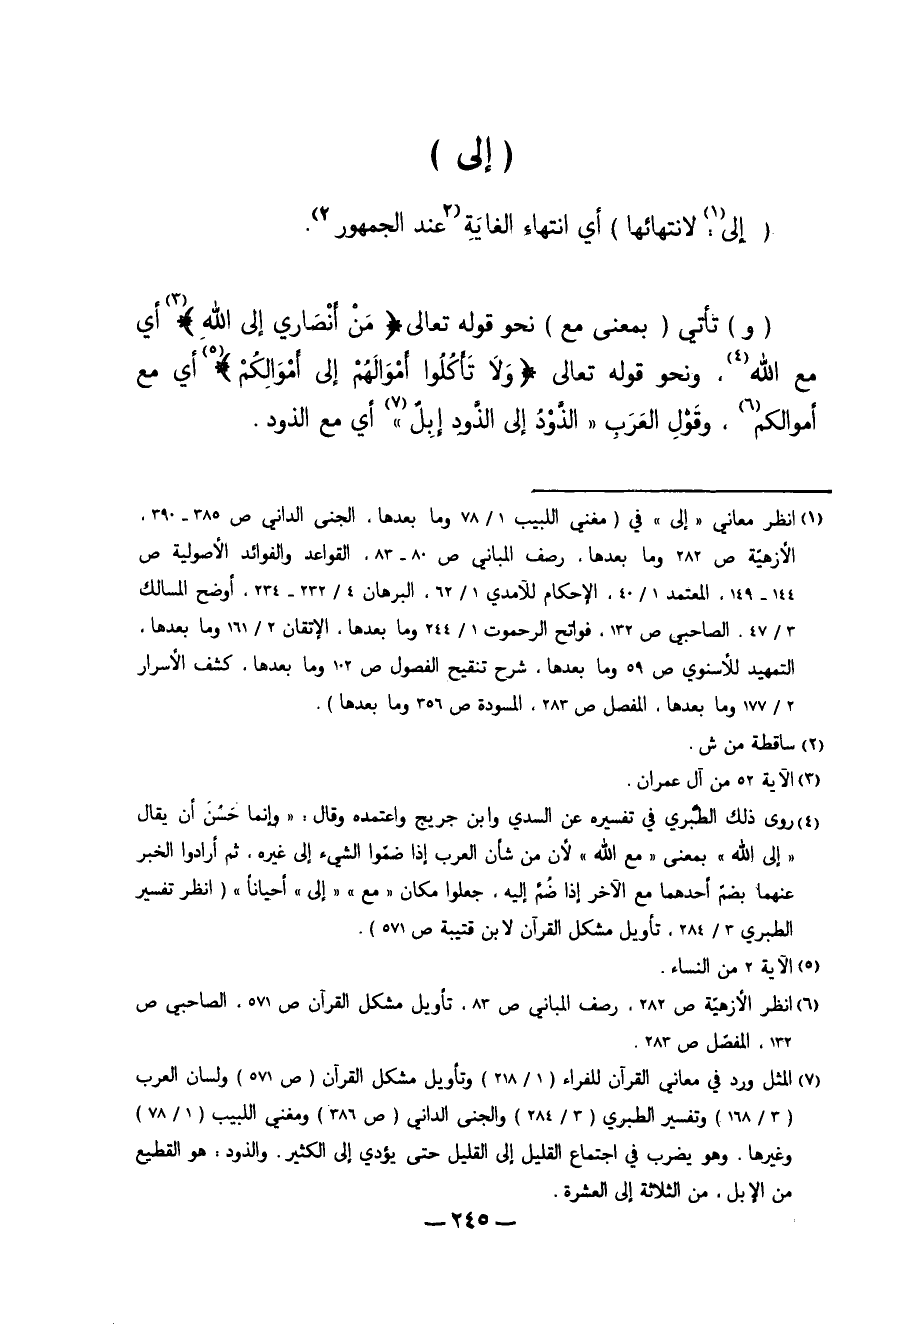 ( إلى )
( إلى(١): لانتهائها ) أي انتهاء الغايَةِ (٢عند الجمهور ٢).
( و ) تأتي ( بمعنى مع ) نحو قوله تعالى ﴿ مَنْ أَنْصَاري إلى اللهِ ﴾(٣) أي
مع الله(٤) ، ونحو قوله تعالى ﴿ وَلَا تَأْكُلُوا أَمْوَالَهُمْ إلى أَمْوَالِكُمْ ﴾(٥) أي مع
أموالكم(٦) ، وقَوْلِ العَرَبِ « الذَّوْدُ إلى الذَّودِ إبِلٌ »(٧) أي مع الذود .
(١) انظر معاني « إلى » في ( مغني اللبيب ١ / ٧٨ وما بعدها ، الجنى الداني ص ٣٨٥ ـ ٣٩٠ ،
الأزهيّة ص ٢٨٢ وما بعدها ، رصف المباني ص ٨٠ ـ ٨٣ ، القواعد والفوائد الأصولية ص
١٤٤ ـ ١٤٩ ، المعتمد ١ / ٤٠ ، الإحكام للآمدي ١ / ٦٢ ، البرهان ٤ / ٢٣٢ ـ ٢٣٤ ، أوضح المسالك
٣ / ٤٧ . الصاحبي ص ١٣٢ ، فواتح الرحموت ١ / ٢٤٤ وما بعدها ، الإتقان ٢ / ١٦١ وما بعدها ،
التمهيد للأسنوي ص ٥٩ وما بعدها ، شرح تنقيح الفصول ص ١٠٢ وما بعدها ، كشف الأسرار
٢ / ١٧٧ وما بعدها ، المفصل ص ٢٨٣ ، المسودة ص ٣٥٦ وما بعدها ) .
(٢) ساقطة من ش .
(٣) الآية ٥٢ من آل عمران .
(٤) روى ذلك الطبّري في تفسيره عن السدي وابن جريج واعتمده وقال : « وإنما حَسُنَ أن يقال
« إلى الله » بمعنى « مع الله » لأن من شأن العرب إذا ضمّوا الشيء إلى غيره ، ثم أرادوا الخبر
عنهما بضمّ أحدهما مع الآخر إذا ضُمَّ إليه ، جعلوا مكان « مع » « إلى » أحياناً » ( انظر تفسير
الطبري ٣ / ٢٨٤ ، تأويل مشكل القرآن لابن قتيبة ص ٥٧١ ) .
(٥) الآية ٢ من النساء .
(٦) انظر الأزهيّة ص ٢٨٢ ، رصف المباني ص ٨٣ ، تأويل مشكل القرآن ص ٥٧١ ، الصاحبي ص
١٣٢ ، المفصّل ص ٢٨٣ .
(٧) المثل ورد في معاني القرآن للفراء ( ١ / ٢١٨ ) وتأويل مشكل القرآن ( ص ٥٧١ ) ولسان العرب
( ٣ / ١٦٨ ) وتفسير الطبري ( ٣ / ٢٨٤ ) والجنى الداني ( ص ٣٨٦ ) ومغني اللبيب ( ١ / ٧٨ )
وغيرها . وهو يضرب في اجتماع القليل إلى القليل حتى يؤدي إلى الكثير . والذود : هو القطيع
من الإبل ، من الثلاثة إلى العشرة .
— ٢٤٥ —